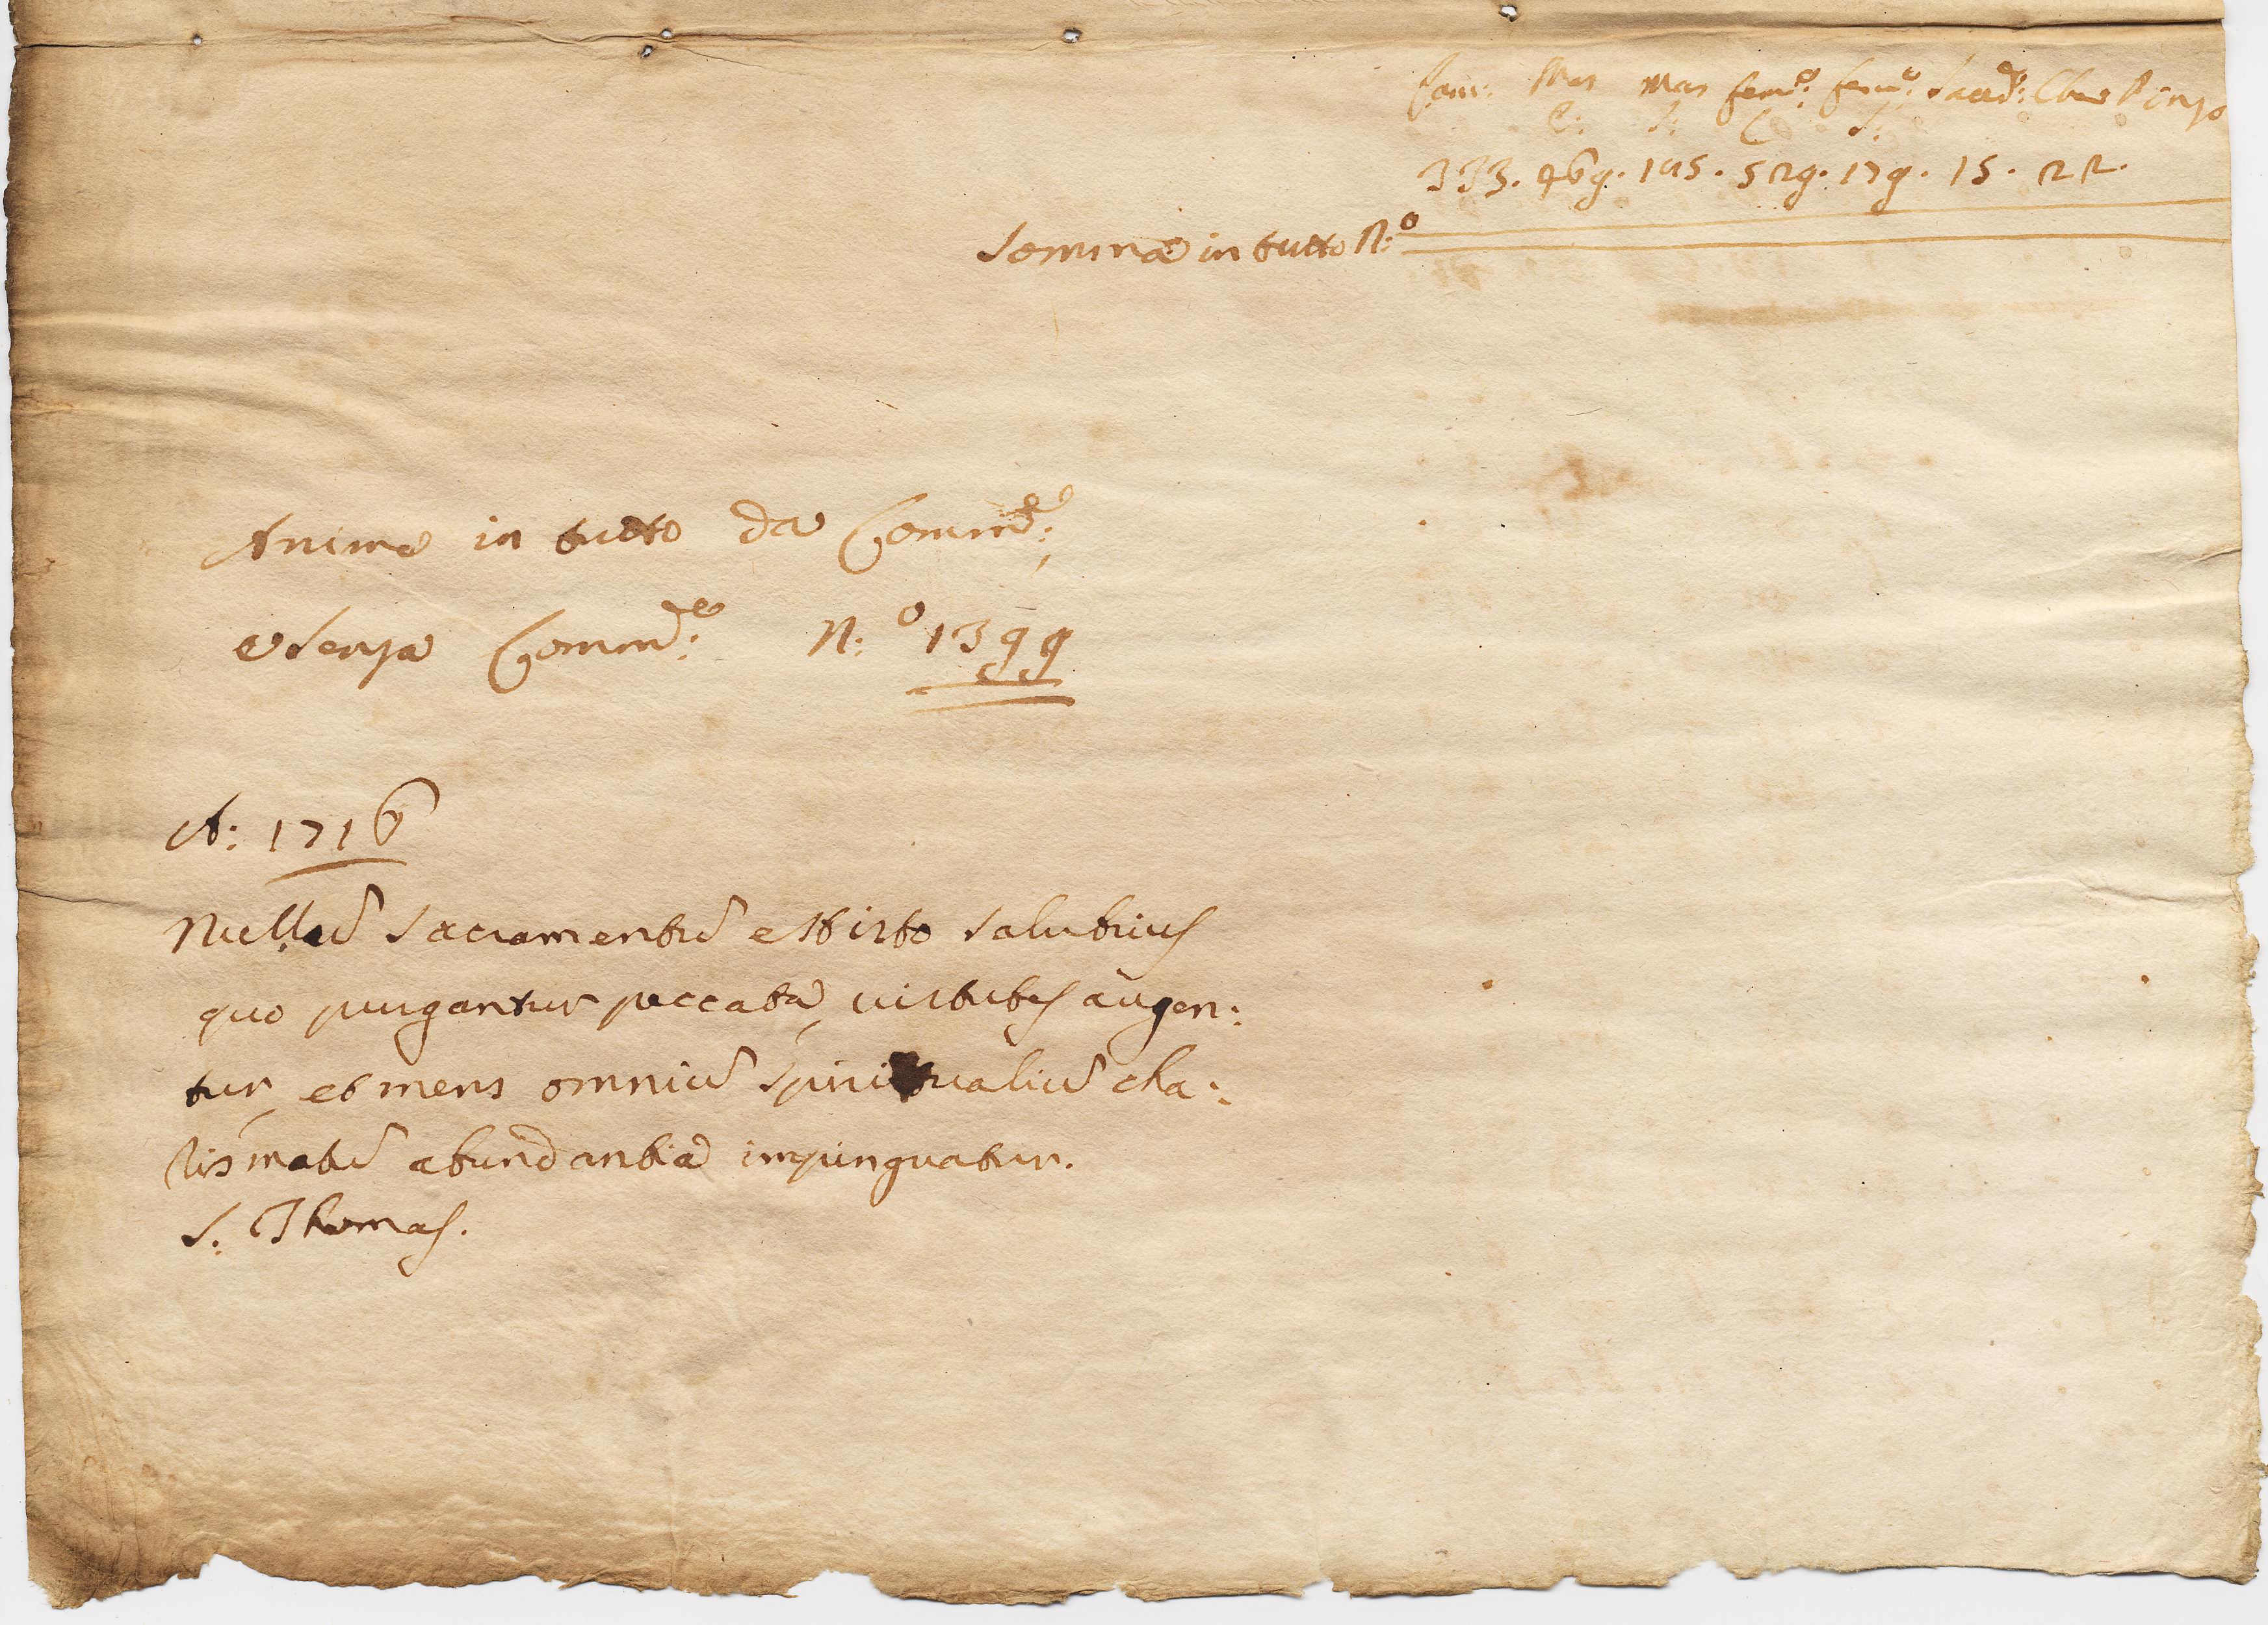 fam: Mas Mas fem:e fem:e Sacd: Che
C: S: C S:
333. 469. 195. 529. 179. 15. 22.
Somma in tutto N:o
Anime in tutto da Comm:e
e senza Comm:e N:o 1399
A: 1716
Nullũ Sacramentũ est isto salubrius
quo purgantur peccata, virtutes augen:
tur, et mens omniũ spiritualiũ cha:
rismatũ abundantia impinguatur.
S. Thomas.